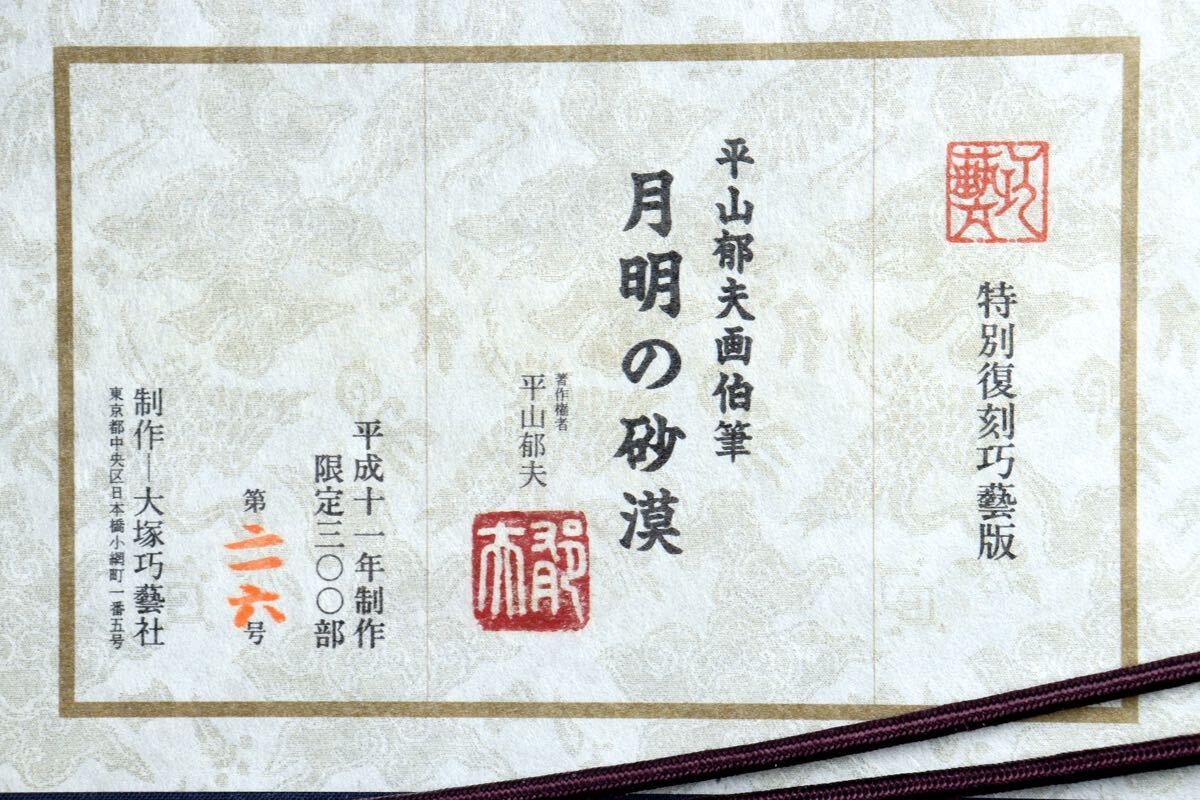 巧藝
特別復刻巧藝版
平山郁夫画伯筆
月明の砂漠
著作権者
平山郁夫
郁夫
平成十一年制作
限定三〇〇部
第二一六号
制作―大塚巧藝社
東京都中央区日本橋小網町一番五号